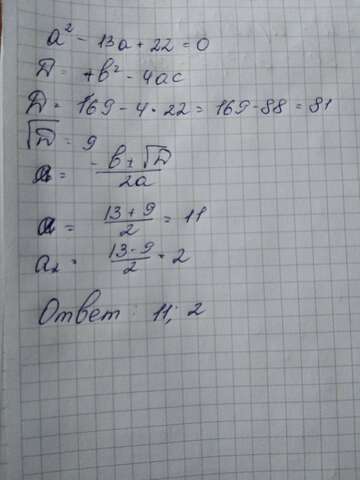 a² - 13a + 22 = 0
D = +b² - 4ac
D = 169 - 4 · 22 = 169 - 88 = 81
√D = 9
a = -b ± √D / 2a
a = 13 + 9 / 2 = 11
a₂ = 13 - 9 / 2 = 2
Ответ: 11; 2